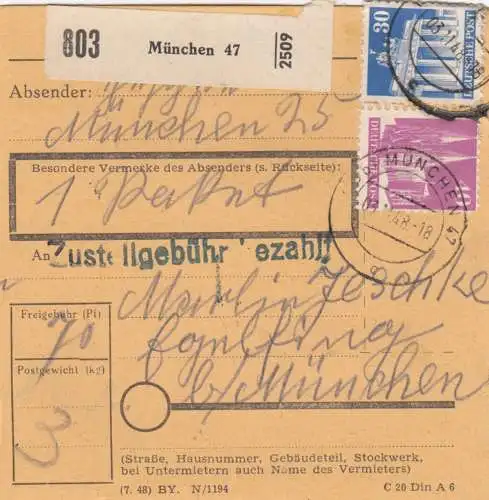 803 München 47 2509
30
DEUTSCHE POST
Absender:
München 25
MÜNCHEN 47
Besondere Vermerke des Absenders (s. Rückseite):
1 Paket
48.-18
An
Zustellgebühr bezahlt
Martin Jeschke
Freigebühr (Pf)
70
Eglfing
Postgewicht (kg)
b/München
3
(Straße, Hausnummer, Gebäudeteil, Stockwerk,
bei Untermietern auch Name des Vermieters)
(7. 48) BY. N/1194 C 20 Din A 6